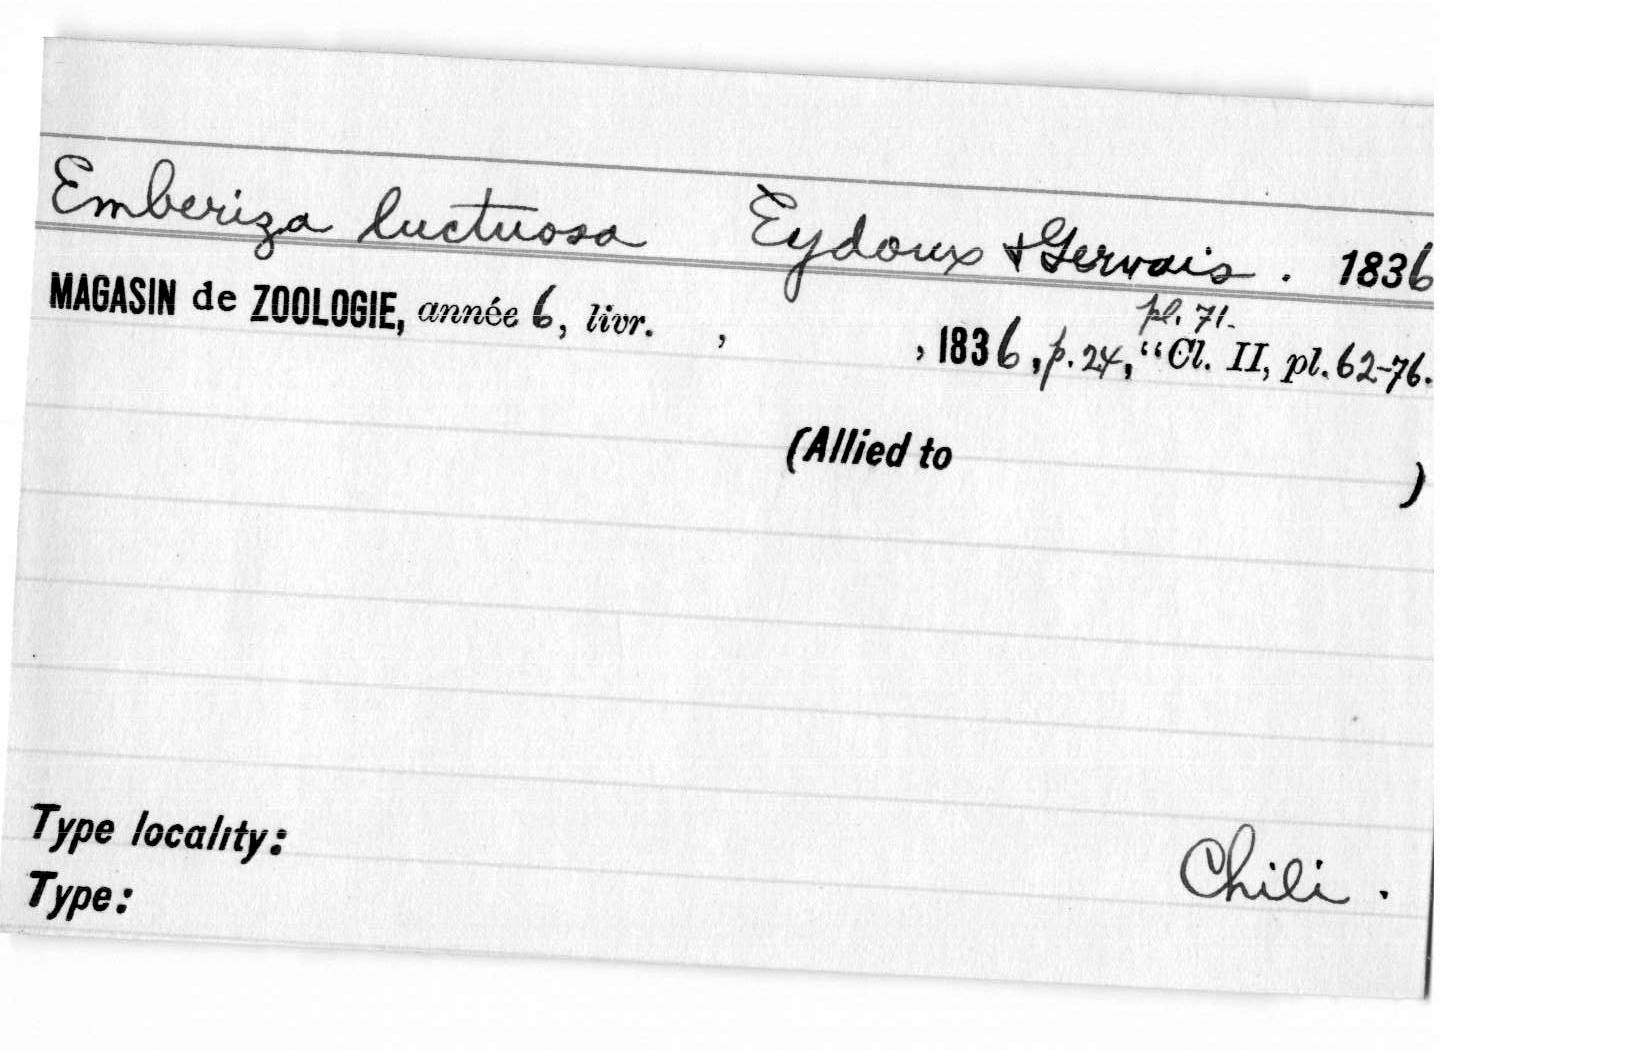 Emberiza luctuosa Eydoux & Gervais. 1836
pl. 71.
MAGASIN de ZOOLOGIE, année 6, livr. , , 1836, p. 24, "Cl. II, pl. 62-76.
(Allied to )
Type locality: Chili.
Type: